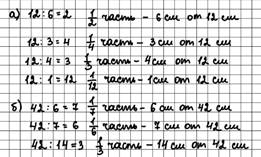 а) 12 : 6 = 2 1/2 часть - 6 см от 12 см
12 : 3 = 4 1/4 часть - 3 см от 12 см
12 : 4 = 3 1/3 часть - 4 см от 12 см
12 : 1 = 12 1/12 часть - 1 см от 12 см
б) 42 : 6 = 7 1/7 часть - 6 см от 42 см
42 : 7 = 6 1/6 часть - 7 см от 42 см
42 : 14 = 3 1/3 часть - 14 см от 42 см